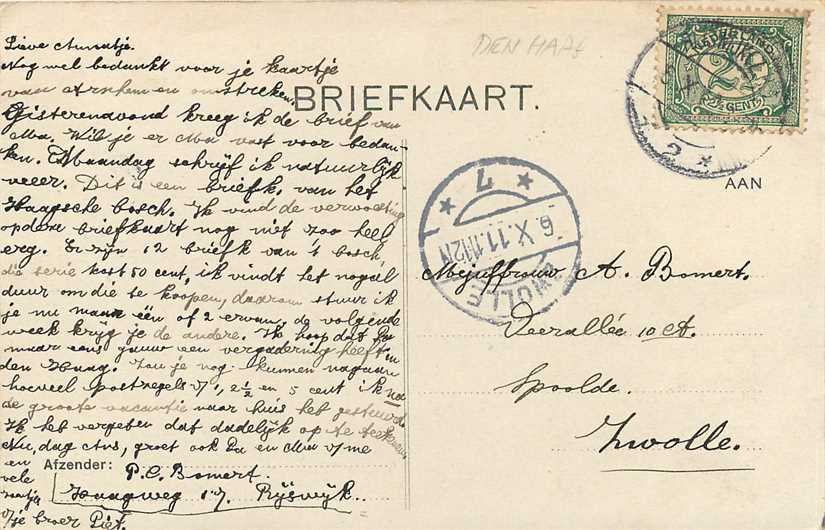 Lieve Annatje.
Nog wel bedankt voor je kaartje
van Arnhem en omstreken.
Gisterenavond kreeg ik de brief van
Ma. Wil je er Ma vast voor bedan-
ken. Maandag schrijf ik natuurlijk
weer. Dit is een briefk. van het
Haagsche bosch. Ik vind de verwoesting
op deze briefkaart nog niet zoo heel
erg. Er zijn 12 briefk van 't bosch,
de serie kost 50 cent, ik vindt het nogal
duur om die te koopen, daarom stuur ik
je nu maar één of 2 ervan, de volgende
week krijg je de andere. Ik hoop dat Pa
maar eens gauw een vergadering heeft in
den Haag. Zou je nog kunnen nagaan
hoeveel postzegels v/ 1, 2½ en 5 cent ik na
de groote vacantie naar huis heb gestuurd
Ik heb vergeten dat dadelijk op te teekenen
Nu, dag zus, groet ook Pa en Ma v/ me
en
vele
v/je broer Piet.
Afzender: P.C. Bomert.
Haagweg 17. Rijswijk.
DEN HAAG
BRIEFKAART.
NEDERLAND
2½
2½ CENT
AAN
ZWOLLE
6.X.11.11-12N
7
Mejuffrouw A. Bomert.
Veerallée 10 A.
Spoolde.
Zwolle.